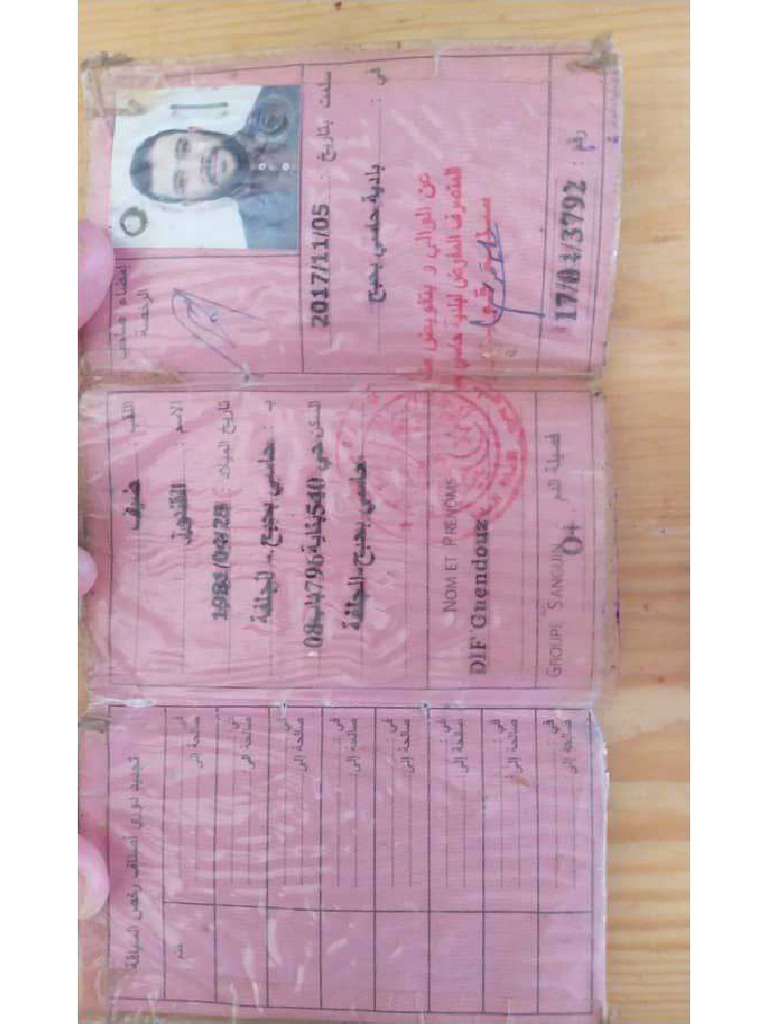 رقم : 17/01/3792
سلمت بتاريخ : 2017/11/05
في : بلدية حاسي بحبح
عن الوالي و بتفويض منه
المتصرف المفوض لبلدية حاسي
إمضاء صاحب
الرخصة
اللقب : ضيف
الاسم : القندوز
تاريخ الميلاد :
ب : حاسي بحبح - الجلفة
السكن حي 540
حاسي بحبح-الجلفة
NOM ET PRENOMS
DIF Guendouz
فصيلة الدم
GROUPE SANGUIN
O+
تجديد دوري أصناف رخص السياقة
ختم
في :
صالحة إلى :
في :
صالحة إلى :
في :
صالحة إلى :
في :
صالحة إلى :
في :
صالحة إلى :
في :
صالحة إلى :
في :
صالحة إلى :
في :
صالحة إلى :